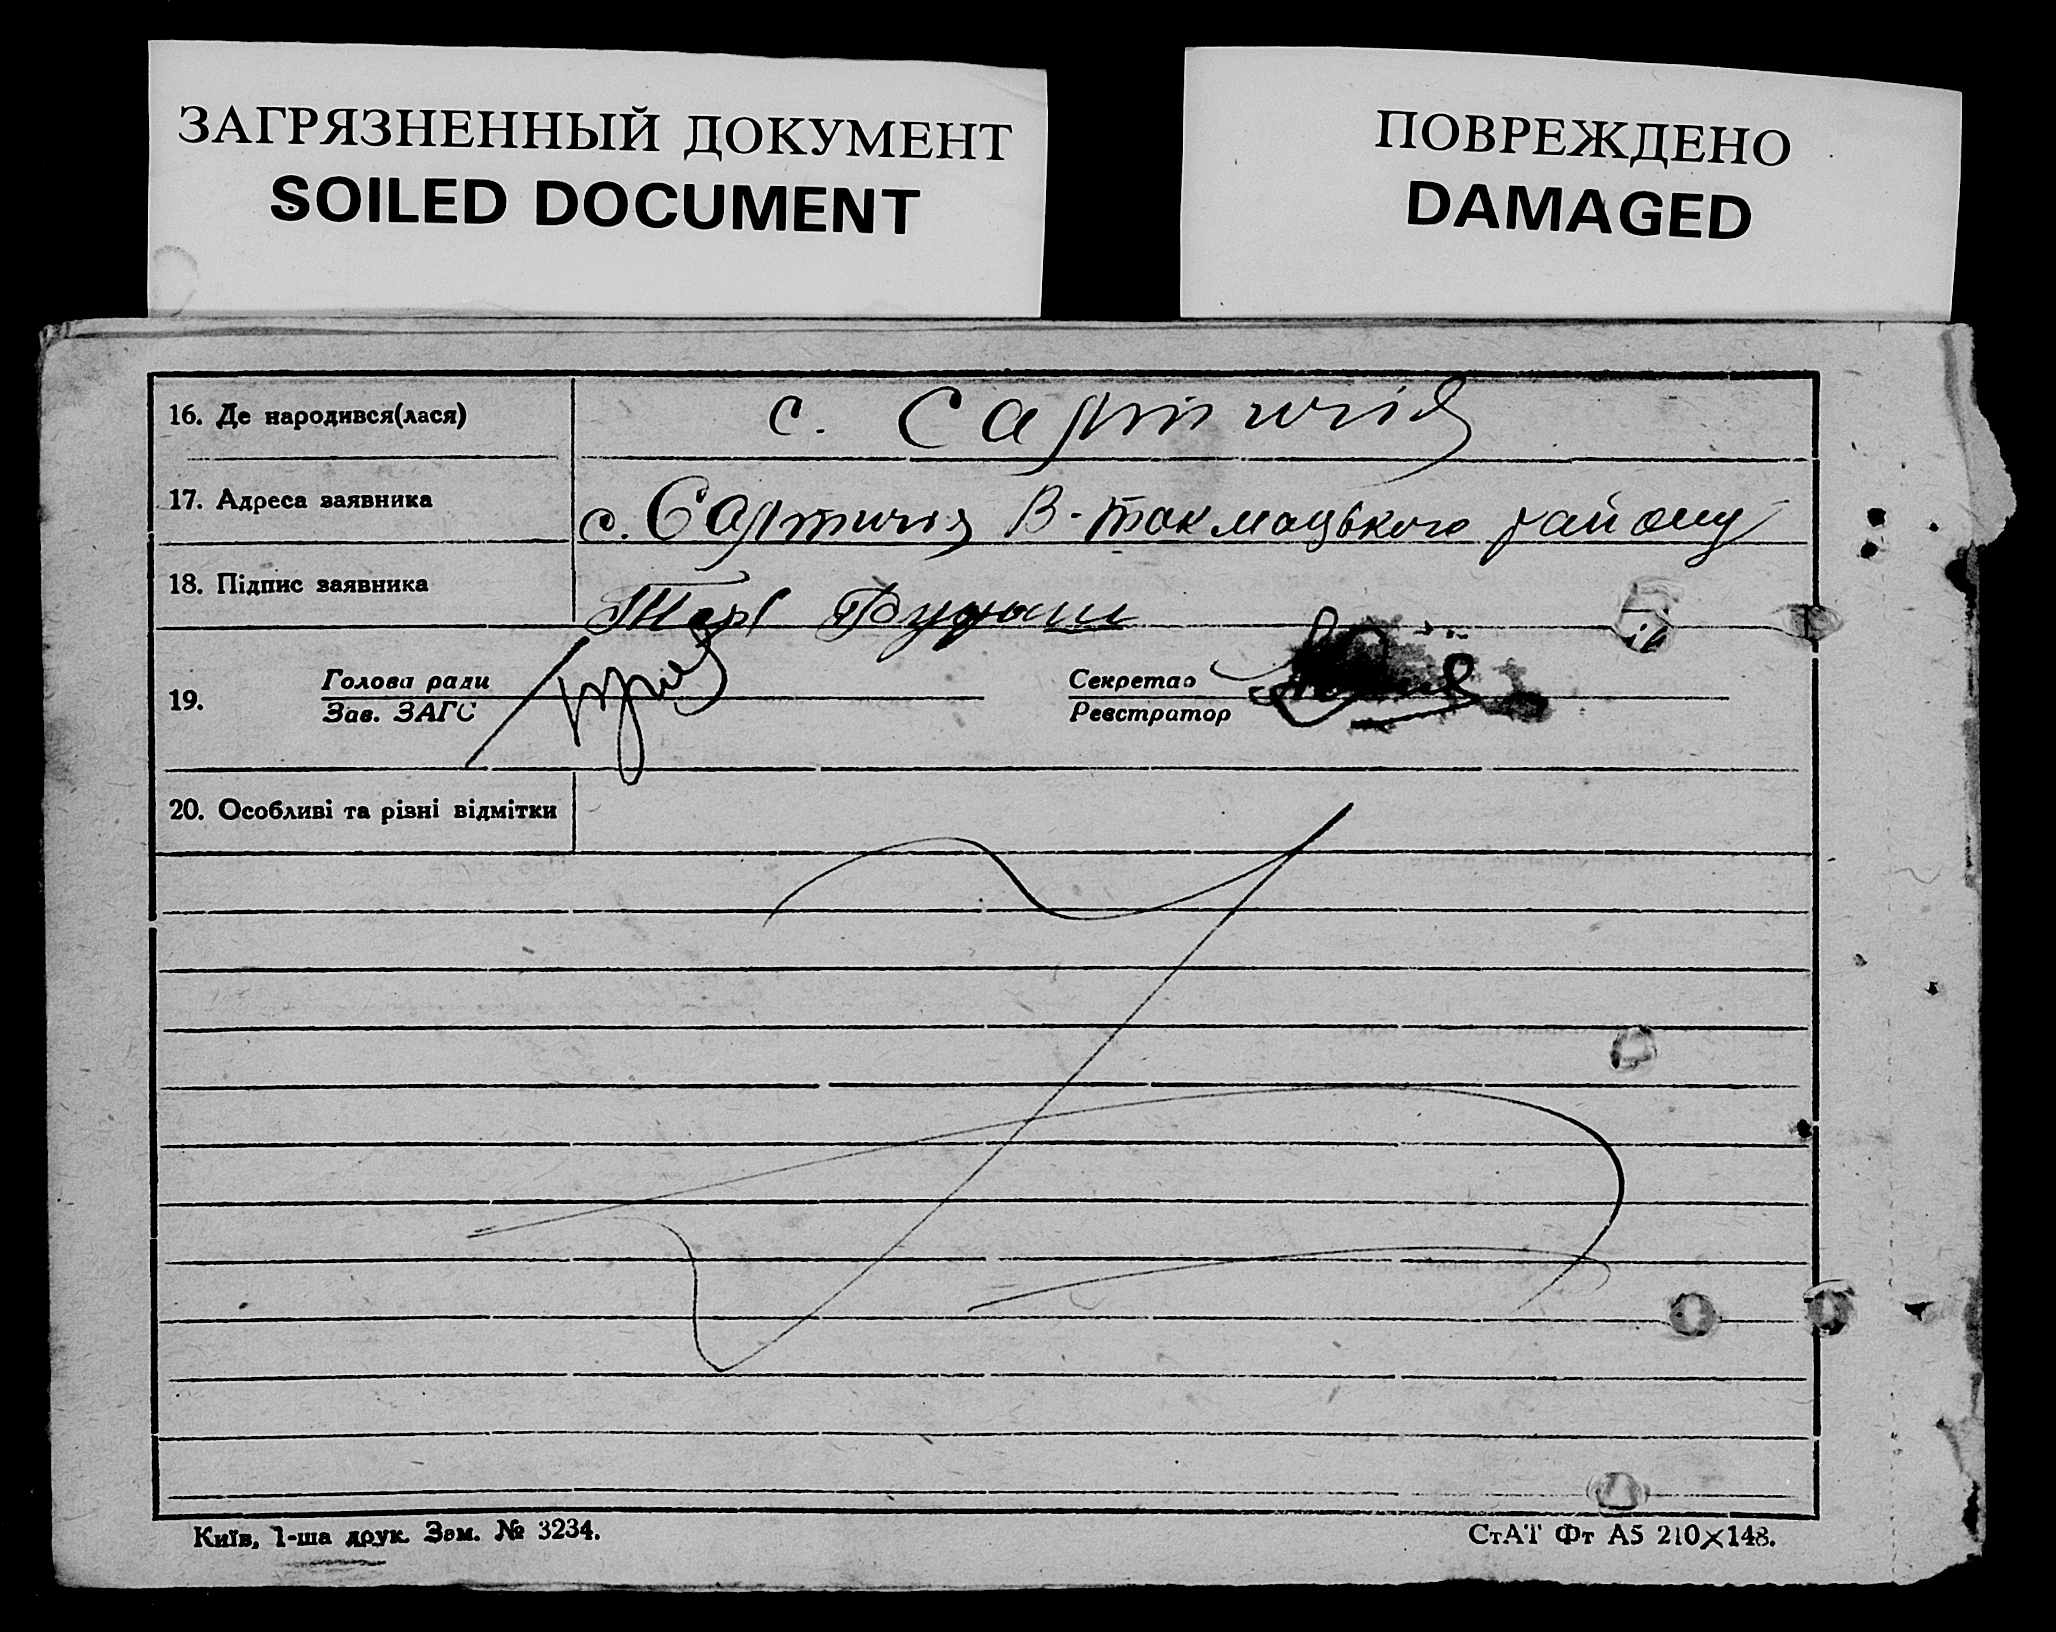 ЗАГРЯЗНЕННЫЙ ДОКУМЕНТ
SOILED DOCUMENT
ПОВРЕЖДЕНО
DAMAGED
16. Де народився(лася) с.
17. Адреса заявника с. В-Токмацького району
18. Підпис заявника
19. Голова ради
Зав. ЗАГС
Секретар
Реєстратор
20. Особливі та різні відмітки
Київ, 1-ша друк. Зам. № 3234.
СтАТ Фт А5 210×148.